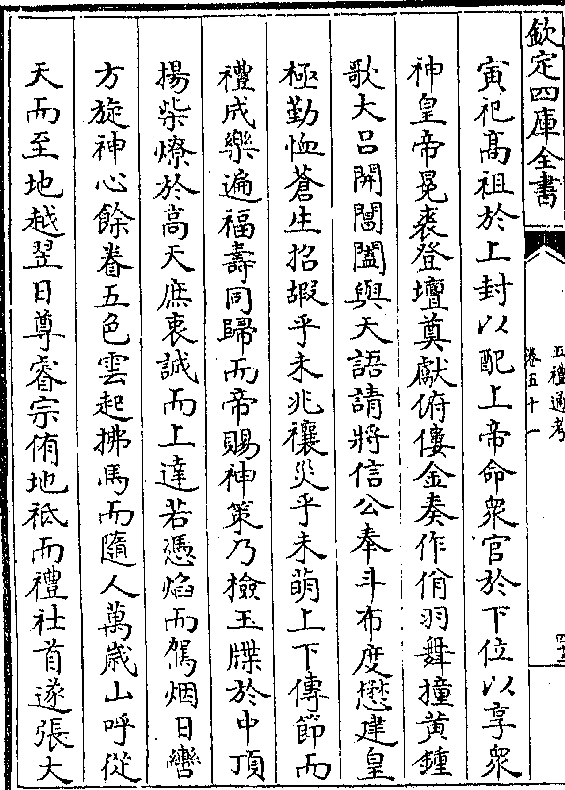 欽定四庫全書
五禮通考
卷五十一
寅祀髙祖於上封以配上帝命衆官於下位以享衆
神皇帝冕裘登壇奠獻俯僂金奏作佾羽舞撞黄鍾
歌大吕開閶闔與天語請將信公奉斗布度懋建皇
極勤恤蒼生招嘏乎未兆禳災乎未萌上下傳節而
禮成樂遍福壽同歸而帝賜神策乃檢玉牒於中頂
揚柴燎於高天庶衷誠而上達若憑焰而駕烟日轡
方旋神心餘眷五色雲起拂馬而隨人萬嵗山呼從
天而至地越翌日尊睿宗侑地祗而禮社首遂張大